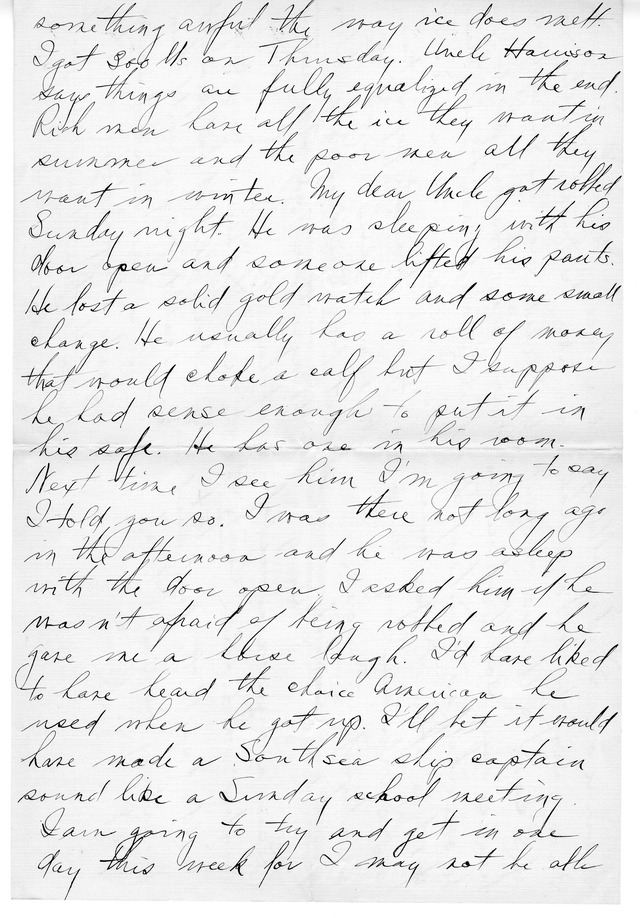 something awful the way ice does melt.
I got 300 lbs on Thursday. Uncle Harrison
says things are fully equalized in the end.
Rich men have all the ice they want in
summer and the poor men all they
want in winter. My dear Uncle got robbed
Sunday night. He was sleeping with his
door open and someone lifted his pants.
He lost a solid gold watch and some small
change. He usually has a roll of money
that would choke a calf but I suppose
he had sense enough to put it in
his safe. He has one in his room.
Next time I see him I'm going to say
I told you so. I was there not long ago
in the afternoon and he was asleep
with the door open. I asked him if he
wasn't afraid of being robbed and he
gave me a horse laugh. I'd have liked
to have heard the choice American he
used when he got up. I'll bet it would
have made a Southsea ship captain
sound like a Sunday school meeting.
I am going to try and get in one
day this week for I may not be able